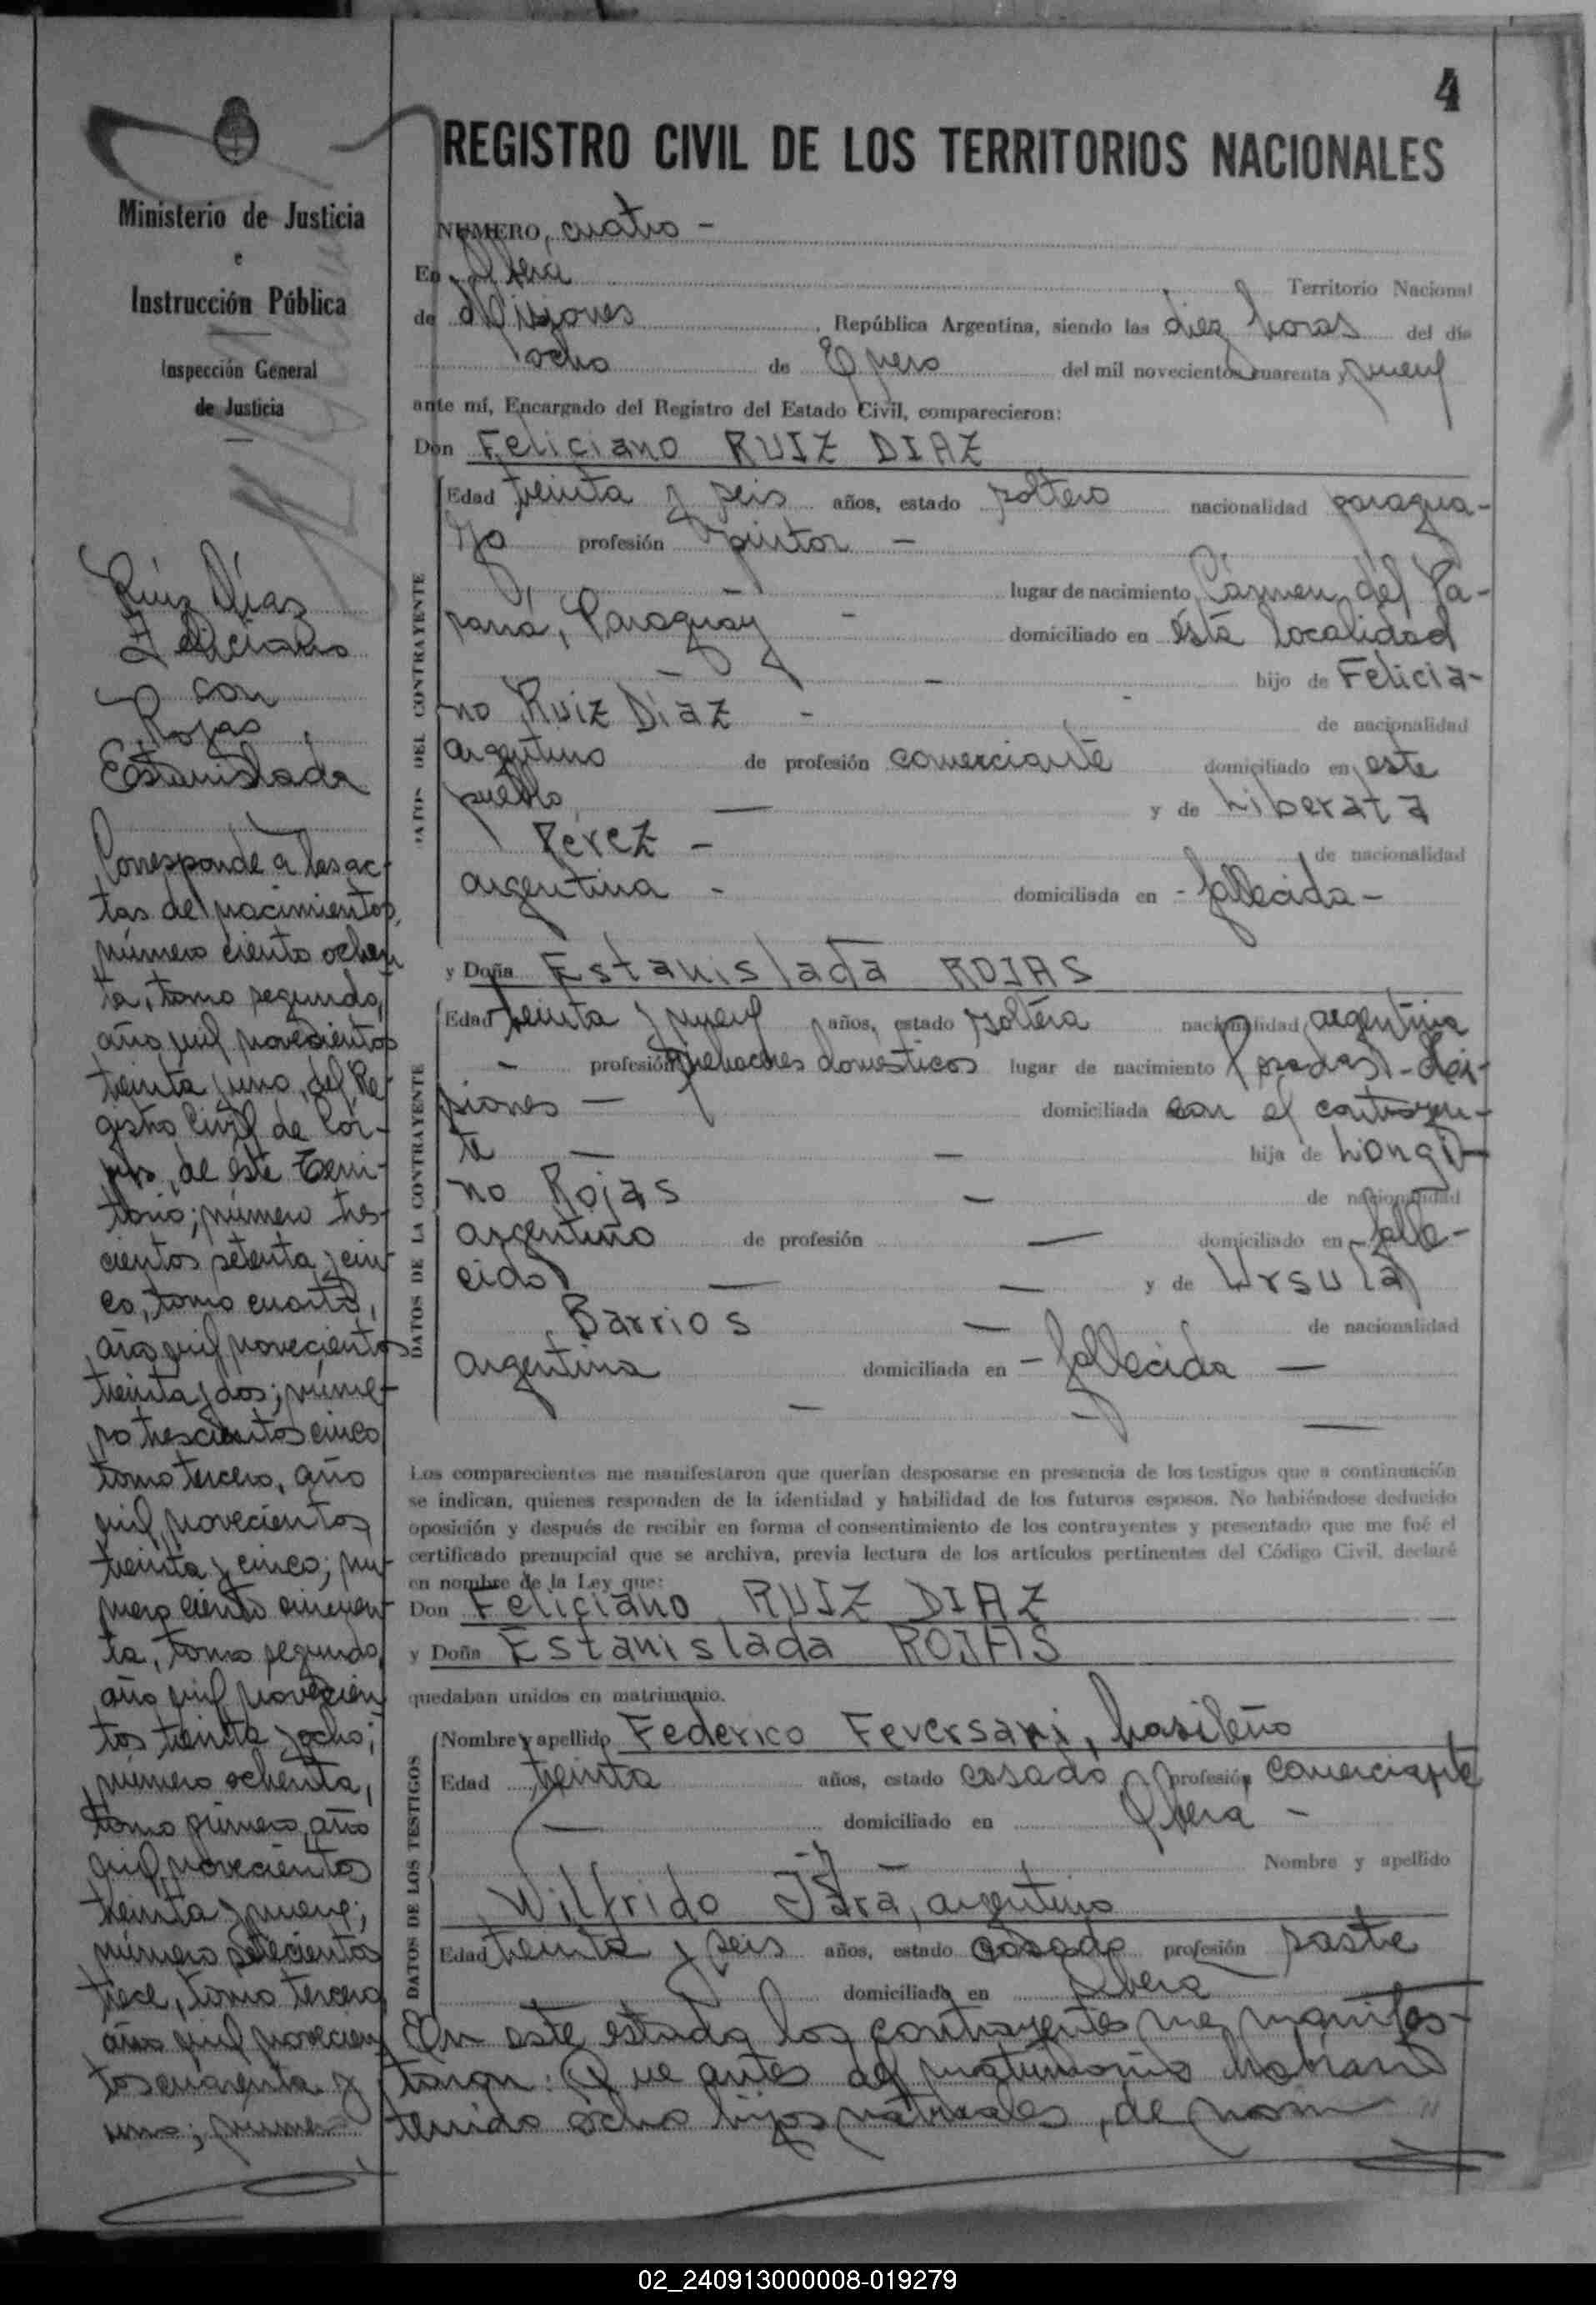 4
REGISTRO CIVIL DE LOS TERRITORIOS NACIONALES
Ministerio de Justicia
e
Instrucción Pública
Inspección General
de Justicia
Ruiz Díaz
Feliciano
con
Rojas
Estanislada
Corresponde a las ac-
tas de nacimientos,
número ciento ochen
ta, tomo segundo,
año mil novecientos
treinta y uno, del Re-
gistro Civil de Cor-
pus, de éste Terri-
torio; número tres-
cientos setenta y cin
co, tomo cuarto,
año mil novecientos
treinta y dos; núme-
ro trescientos cinco
tomo tercero, año
mil novecientos
treinta y cinco; nú-
mero ciento cincuen
ta, tomo segundo,
año mil novecien
tos treinta y ocho;
número ochenta,
tomo primero, año
mil novecientos
treinta y nueve;
número setecientos
trece, tomo tercero,
año mil novecien
tos cuarenta y
uno; número
NUMERO, cuatro -
En Oberá Territorio Nacional
de Misiones, República Argentina, siendo las diez horas del día
ocho de Enero del mil novecientos cuarenta y nueve
ante mí, Encargado del Registro del Estado Civil, comparecieron:
Don Feliciano RUIZ DIAZ
DATOS DEL CONTRAYENTE
Edad treinta y seis años, estado soltero nacionalidad paragua-
yo profesión pintor -
lugar de nacimiento Cármen del Pa-
raná, Paraguay - domiciliado en ésta localidad
- - hijo de Felicia-
no Ruiz Díaz - de nacionalidad
argentino de profesión comerciante domiciliado en este
pueblo — y de Liberata
Pérez - de nacionalidad
argentina - domiciliada en - fallecida -
y Doña Estanislada ROJAS
DATOS DE LA CONTRAYENTE
Edad treinta y nueve años, estado soltera nacionalidad argentina
- profesión quehaceres domésticos lugar de nacimiento Posadas - Mi-
siones — domiciliada con el contrayen-
te — — hija de Longi-
no Rojas — de nacionalidad
argentino de profesión — domiciliado en falle-
cido — — y de Ursula
Barrios — de nacionalidad
argentina domiciliada en - fallecida —
Los comparecientes me manifestaron que querían desposarse en presencia de los testigos que a continuación
se indican, quienes responden de la identidad y habilidad de los futuros esposos. No habiéndose deducido
oposición y después de recibir en forma el consentimiento de los contrayentes y presentado que me fué el
certificado prenupcial que se archiva, previa lectura de los artículos pertinentes del Código Civil, declaré
en nombre de la Ley que:
Don Feliciano RUIZ DIAZ
y Doña Estanislada ROJAS
quedaban unidos en matrimonio.
DATOS DE LOS TESTIGOS
Nombre y apellido Federico Feversani, brasileño
Edad treinta años, estado casado profesión comerciante
— domiciliado en Oberá -
Nombre y apellido
Wilfrido Jara, argentino
Edad treinta y seis años, estado casado profesión sastre
domiciliado en Oberá
En este estado los contrayentes me manifes-
taron: Que antes del matrimonio habían
tenido ocho hijos naturales, de nom "
02_240913000008-019279